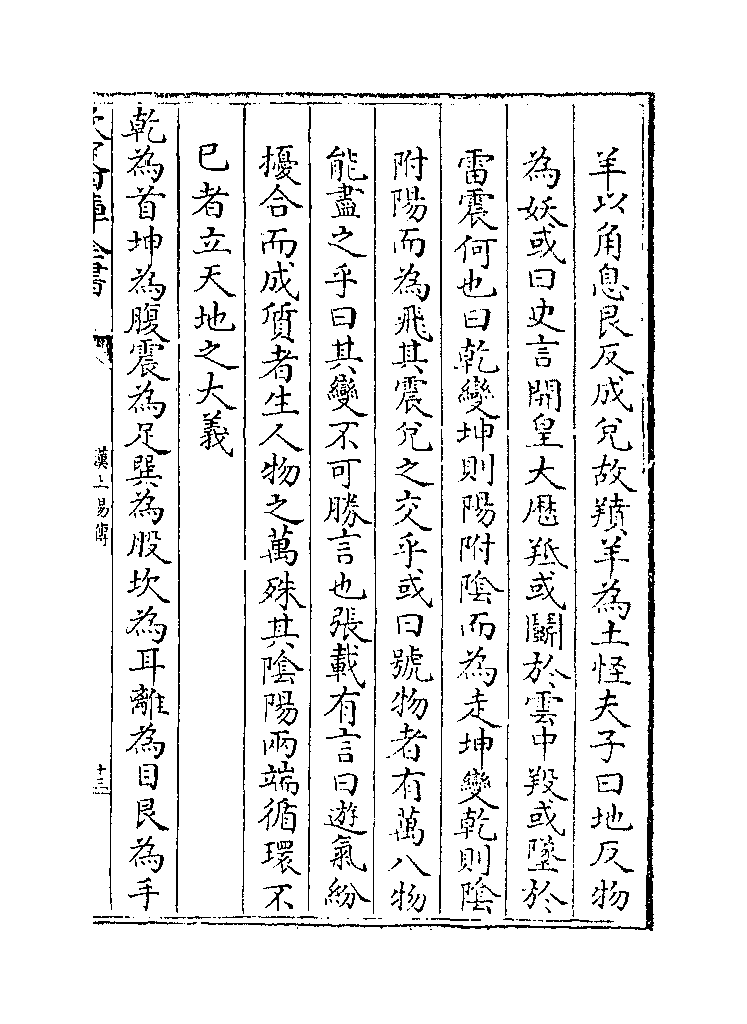 羊以角息艮反成兌故羵羊為土怪夫子曰地反物
為妖或曰史言開皇大厯羝或鬭於雲中羖或墜於
雷震何也曰乾變坤則陽附陰而為走坤變乾則陰
附陽而為飛其震兌之交乎或曰號物者有萬八物
能盡之乎曰其變不可勝言也張載有言曰遊氣紛
擾合而成質者生人物之萬殊其陰陽兩端循環不
已者立天地之大義
乾為首坤為腹震為足巽為股坎為耳離為目艮為手
欽定四庫全書
漢上易傳
十三